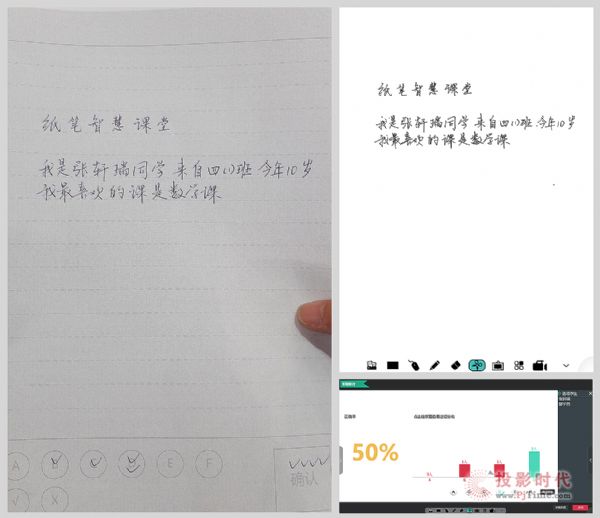 纸笔智慧课堂
我是张轩瑞同学 来自四(1)班 今年10岁
我最喜欢的课是数学课
A
E
F
X
确认
纸笔智慧课堂
我是张轩瑞同学 来自四(1)班 今年10岁
我最喜欢的课是数学课
正确率
50%
投影时代
www.PjTime.com